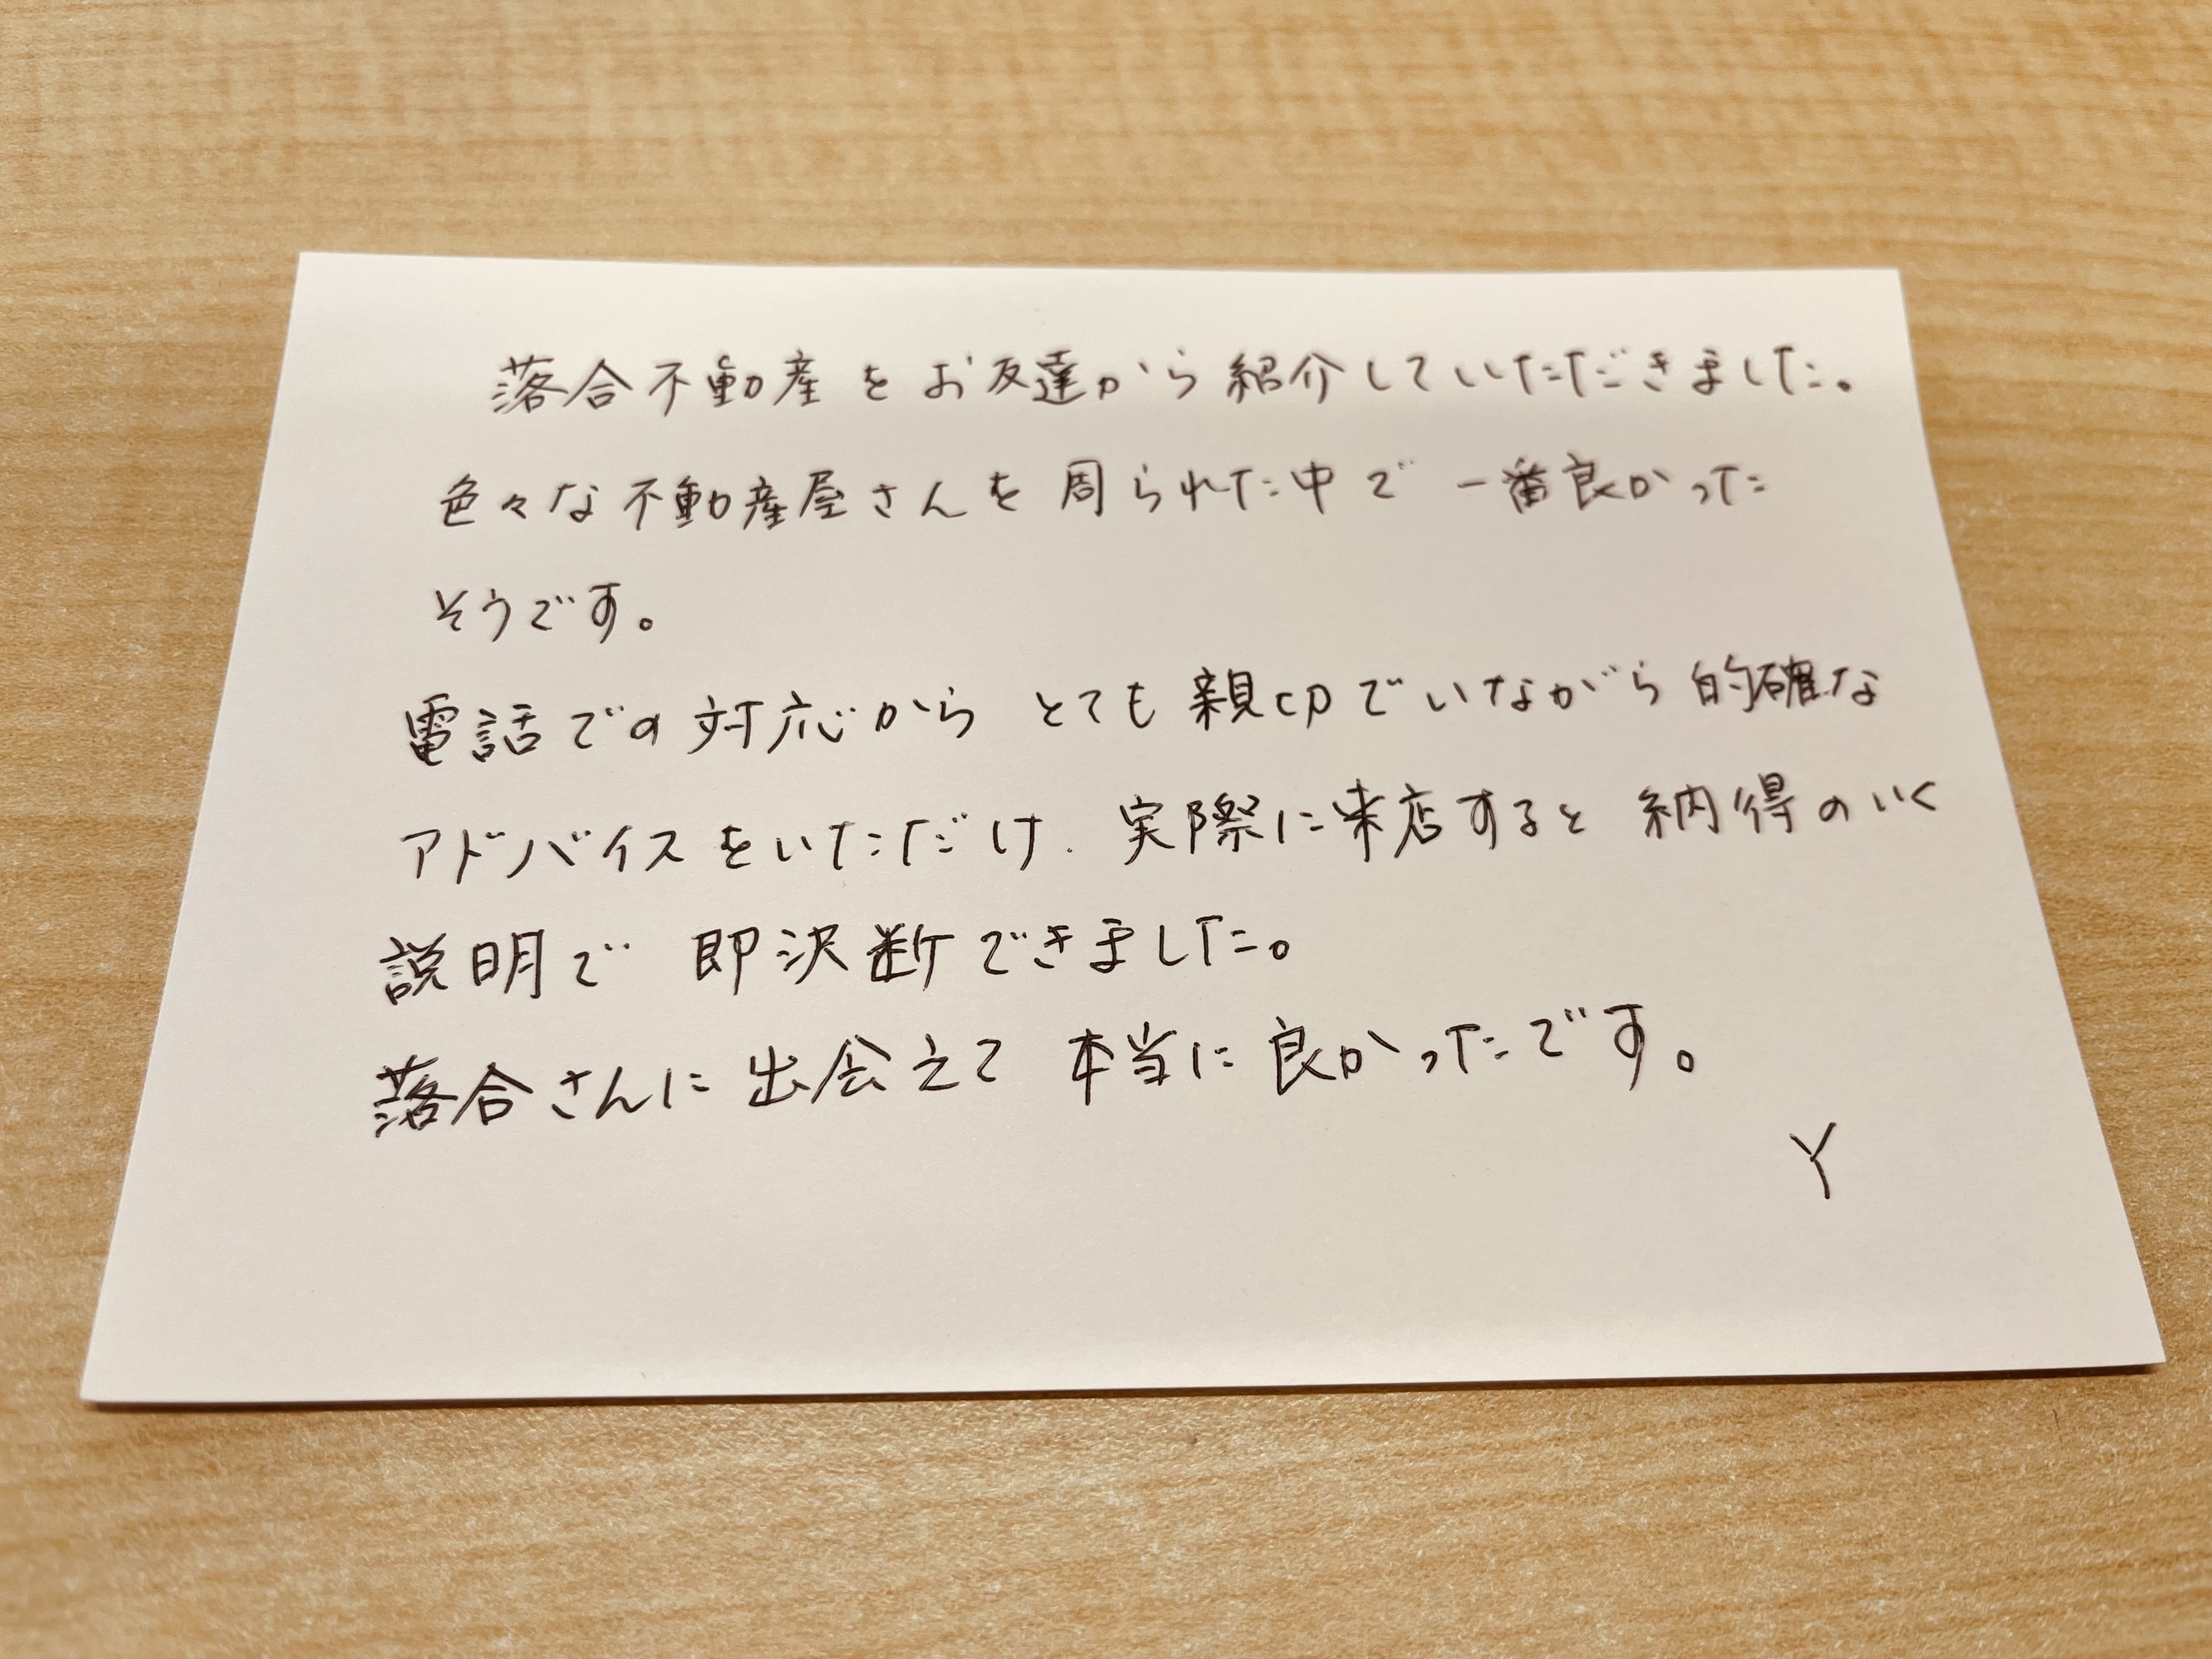 落合不動産をお友達から紹介していただきました。
色々な不動産屋さんを周られた中で一番良かった
そうです。
電話での対応からとても親切でいながら的確な
アドバイスをいただけ、実際に来店すると納得のいく
説明で即決断できました。
落合さんに出会えて本当に良かったです。
Y